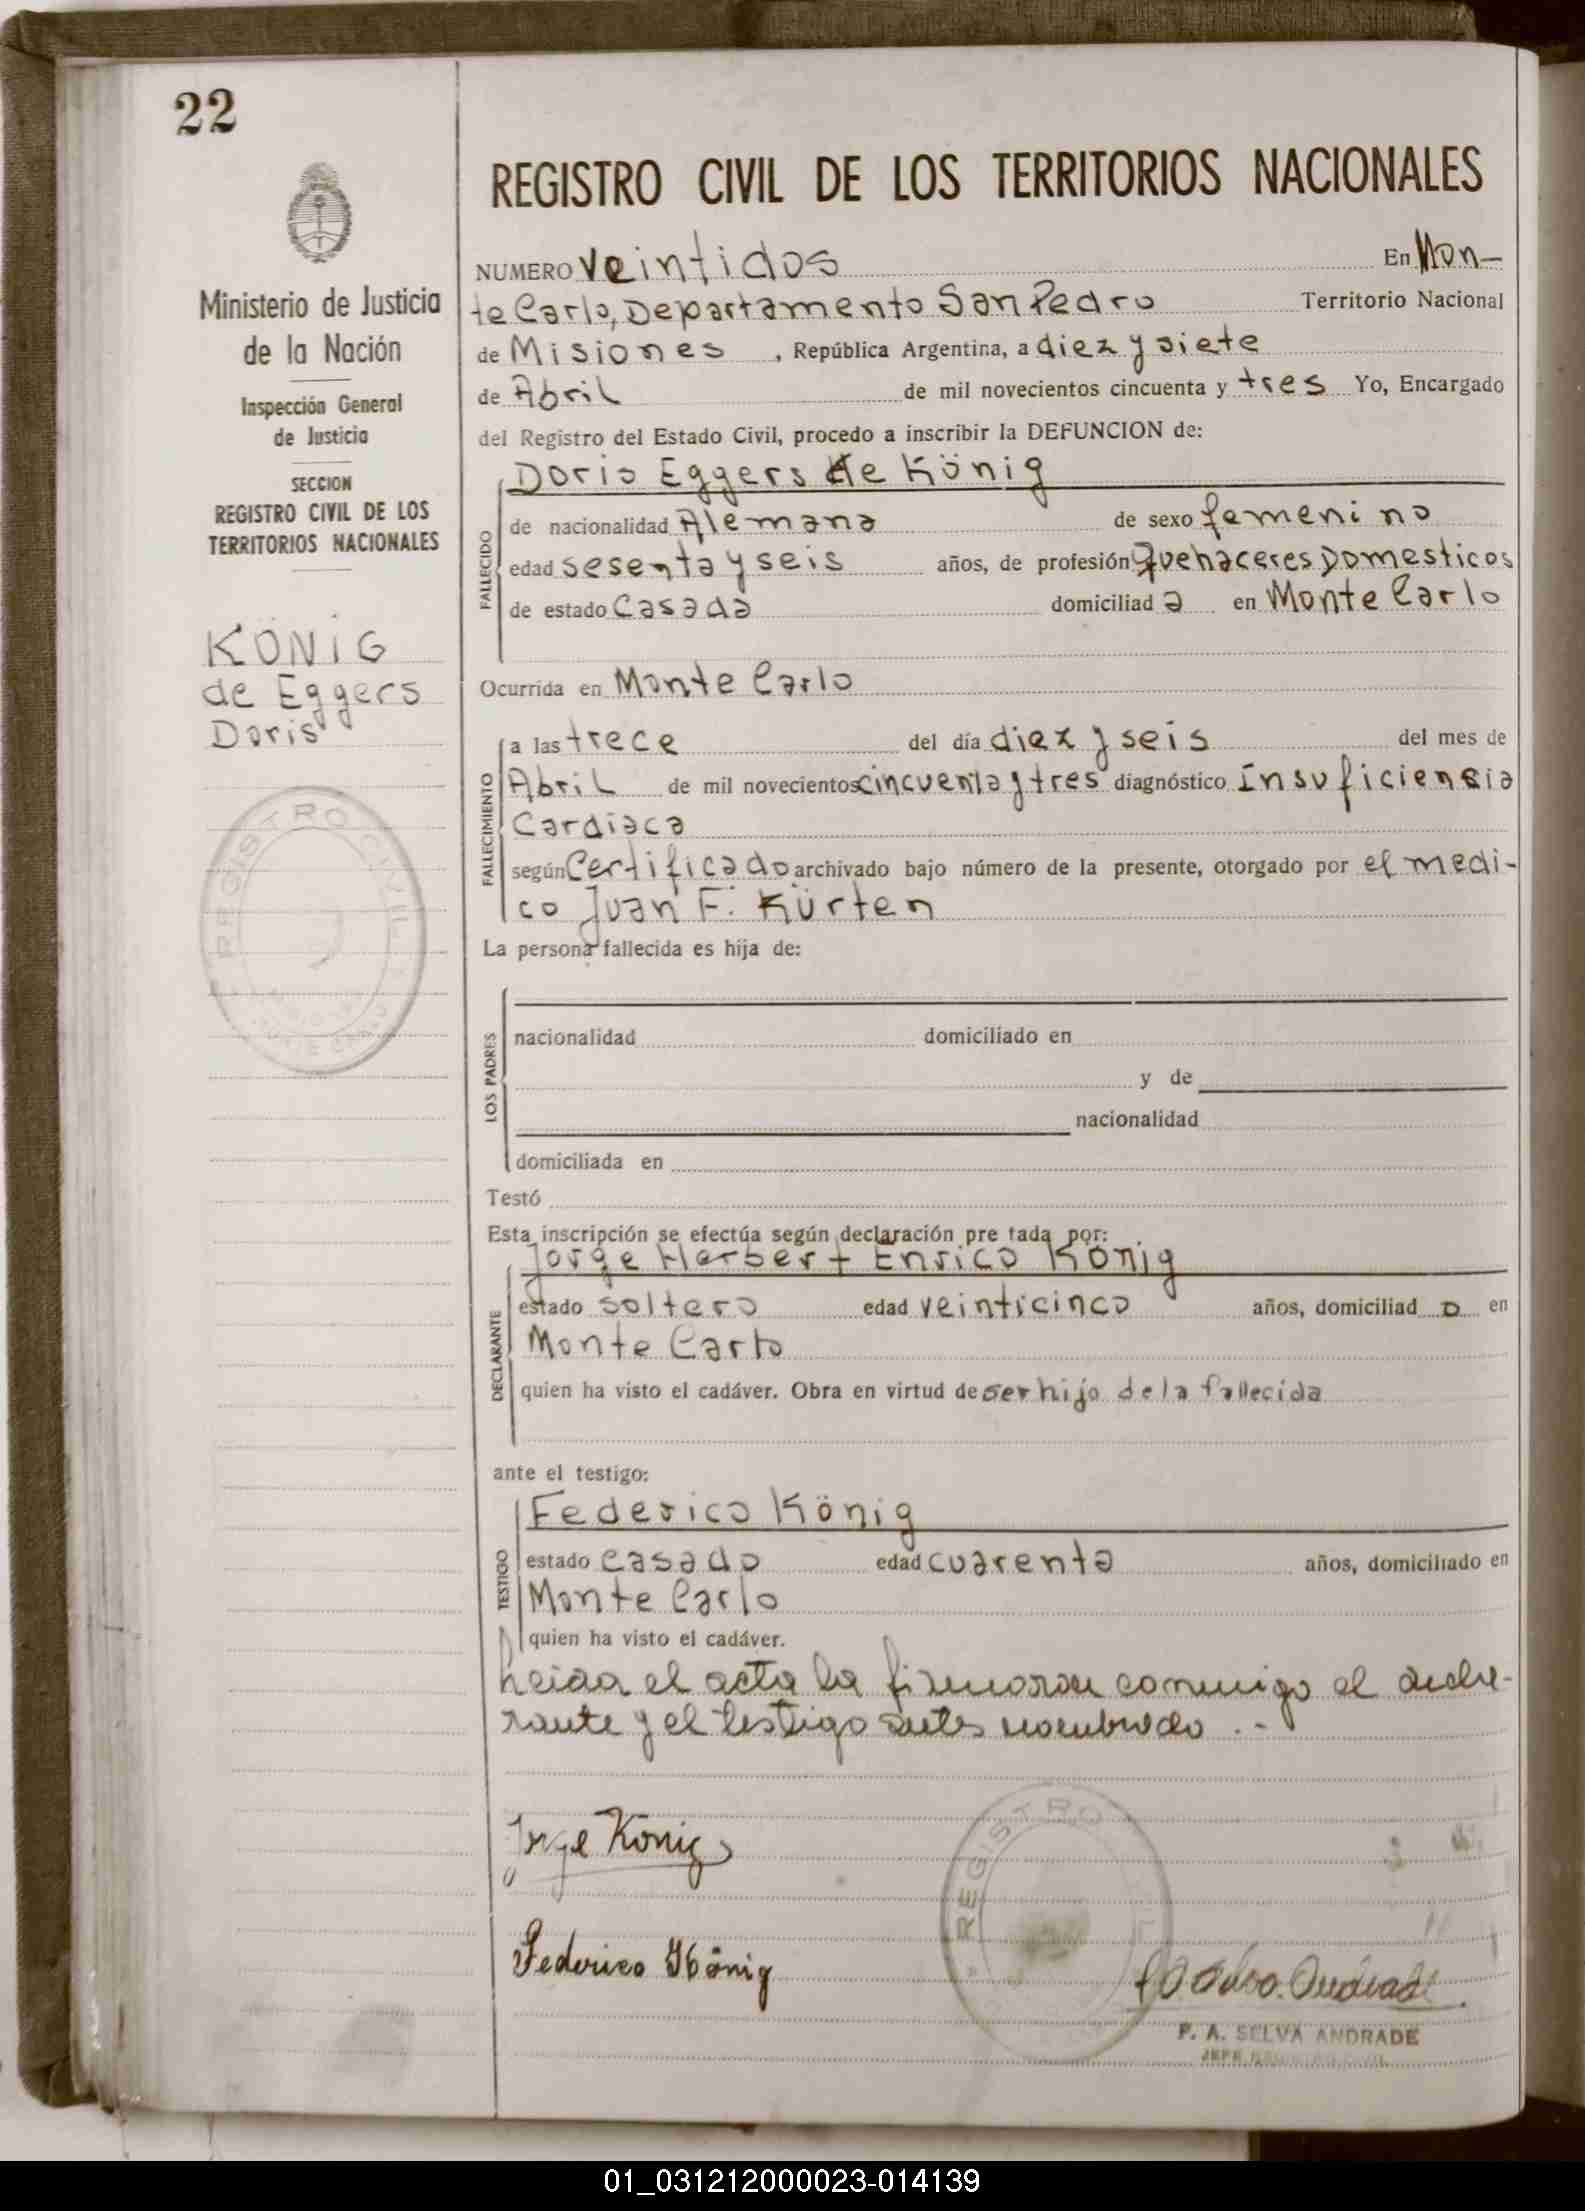 22
REGISTRO CIVIL DE LOS TERRITORIOS NACIONALES
Ministerio de Justicia
de la Nación
Inspección General
de Justicia
SECCION
REGISTRO CIVIL DE LOS
TERRITORIOS NACIONALES
KÖNIG
de Eggers
Doris
REGISTRO CIVIL
NUMERO veintidos En Mon-
te Carlo, Departamento San Pedro Territorio Nacional
de Misiones, República Argentina, a diez y siete
de Abril de mil novecientos cincuenta y tres Yo, Encargado
del Registro del Estado Civil, procedo a inscribir la DEFUNCION de:
FALLECIDO
Doris Eggers de König
de nacionalidad Alemana de sexo femenino
edad sesenta y seis años, de profesión Quehaceres Domesticos
de estado Casada domiciliad a en Monte Carlo
Ocurrida en Monte Carlo
FALLECIMIENTO
a las trece del día diez y seis del mes de
Abril de mil novecientos cincuenta y tres diagnóstico Insuficiensia
Cardiaca
según Certificado archivado bajo número de la presente, otorgado por el medi-
co Juan F. Kürten
La persona fallecida es hija de:
LOS PADRES
nacionalidad domiciliado en
y de
nacionalidad
domiciliada en
Testó
Esta inscripción se efectúa según declaración pre tada por:
DECLARANTE
Jorge Herbert Enrico König
estado soltero edad veinticinco años, domiciliad o en
Monte Carlo
quien ha visto el cadáver. Obra en virtud de ser hijo de la fallecida
ante el testigo:
TESTIGO
Federico König
estado casado edad cuarenta años, domiciliado en
Monte Carlo
quien ha visto el cadáver.
Leida el acta la firmaron conmigo el decla-
rante y el testigo antes nombrado . -
Jorge König
REGISTRO
Federico König
P. A. SELVA ANDRADE
JEFE
01_031212000023-014139